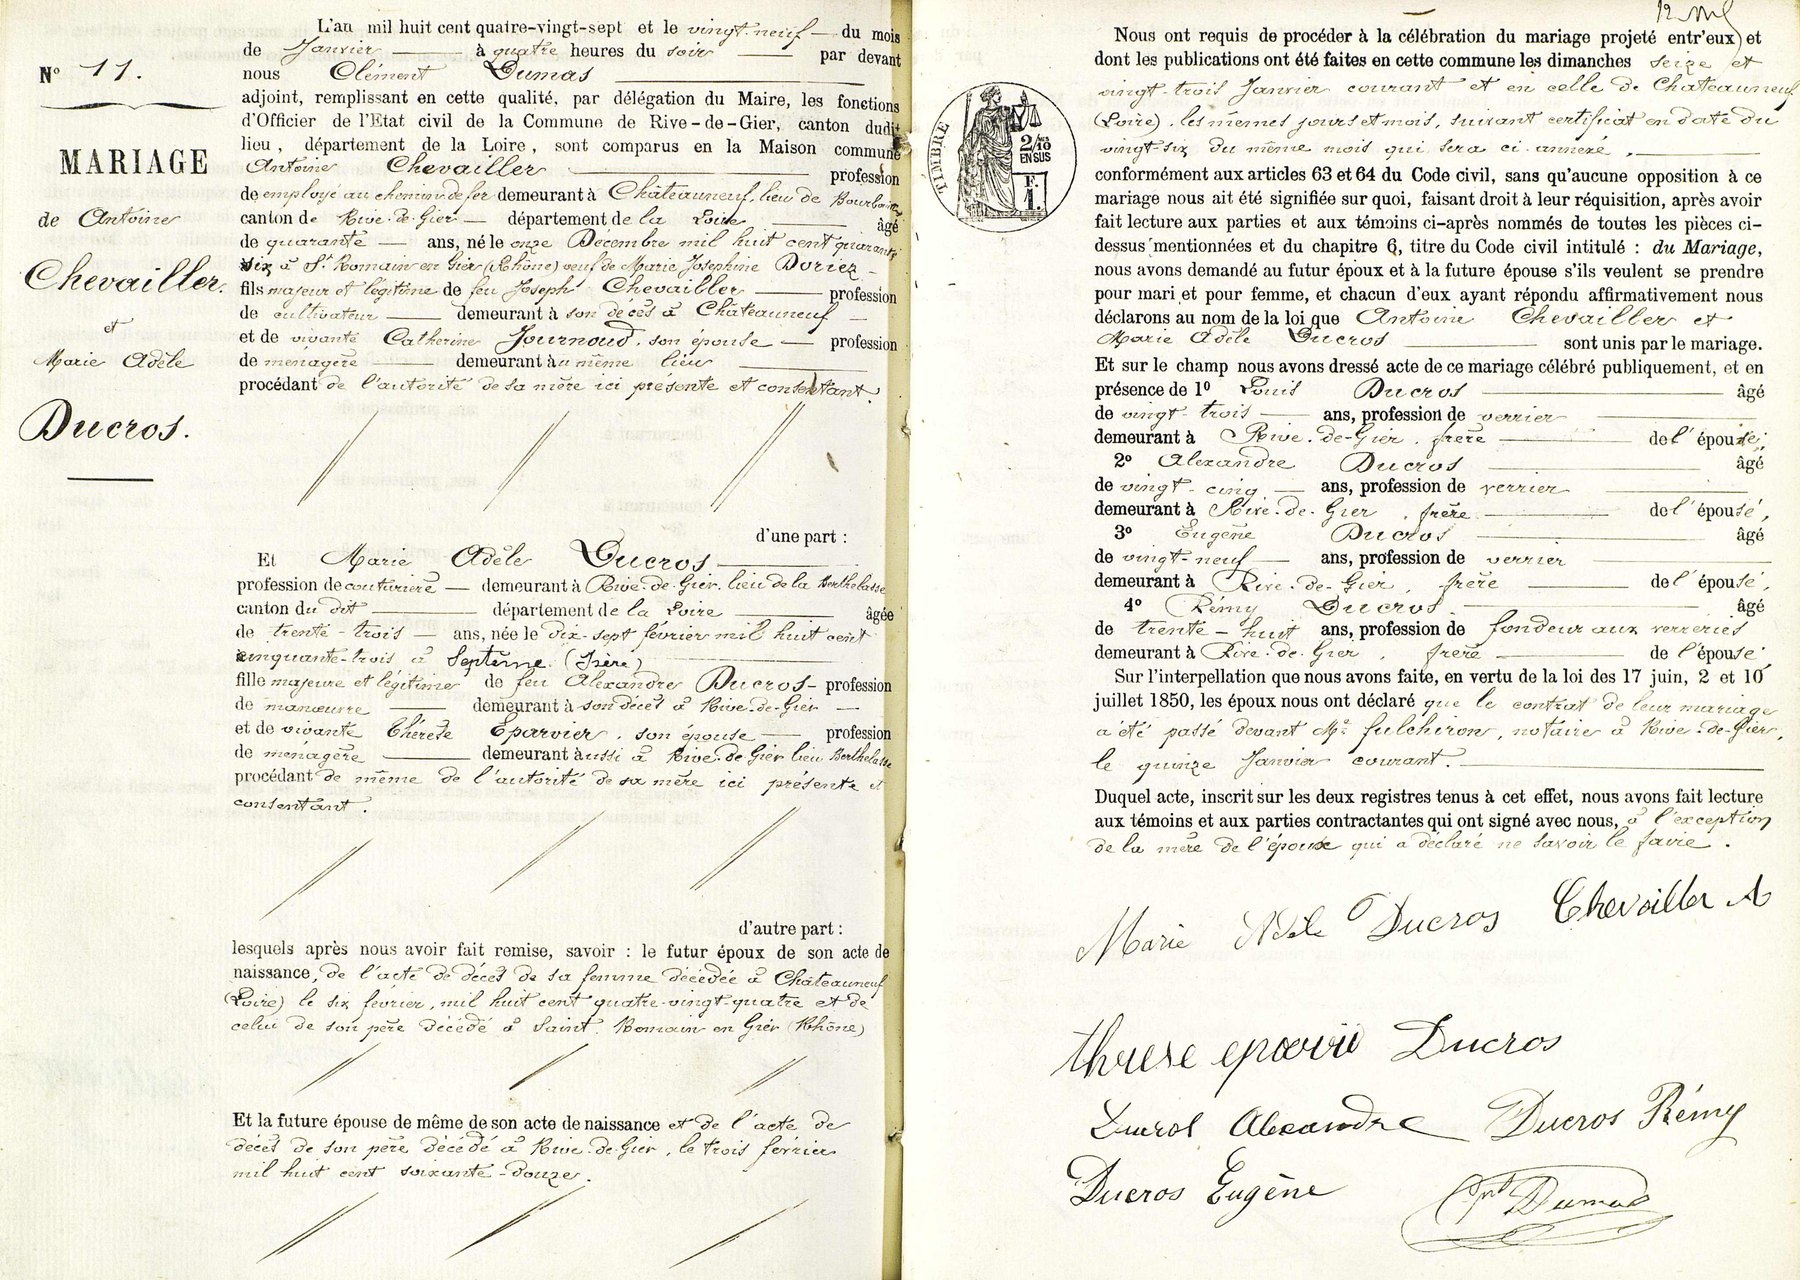 N° 11.
MARIAGE
de Antoine
Chevailler.
et
Marie Adèle
Ducros.
L'an mil huit cent quatre-vingt-sept et le vingt-neuf du mois
de Janvier à quatre heures du soir par devant
nous Clément Dumas
adjoint, remplissant en cette qualité, par délégation du Maire, les fonctions
d'Officier de l'Etat civil de la Commune de Rive-de-Gier, canton dudit
lieu, département de la Loire, sont comparus en la Maison commune
Antoine Chevailler profession
de employé au chemin de fer demeurant à Châteauneuf, lieu de
canton de Rive-de-Gier département de la Loire âgé
de quarante ans, né le onze Décembre mil huit cent quarante
six à St Romain en Gier (Rhône) veuf de Marie Josephine Doriez
fils majeur et légitime de feu Joseph Chevailler profession
de cultivateur demeurant à son décès à Châteauneuf
et de vivante Catherine Journoud, son épouse profession
de menagère demeurant au même lieu
procédant de l'autorité de sa mère ici présente et consentant.
d'une part :
Et Marie Adèle Ducros
profession de couturière demeurant à Rive-de-Gier, lieu de la Berthelasse
canton du dit département de la Loire âgée
de trente-trois ans, née le dix-sept février mil huit cent
cinquante-trois à Septème (Isère)
fille majeure et légitime de feu Alexandre Ducros profession
de manœuvre demeurant à son décès à Rive-de-Gier
et de vivante Thérèse Eparvier, son épouse profession
de menagère demeurant aussi à Rive-de-Gier lieu Berthelasse
procédant de même de l'autorité de sa mère ici présente et
consentant.
d'autre part :
lesquels après nous avoir fait remise, savoir : le futur époux de son acte de
naissance, de l'acte de décès de sa femme décédée à Châteauneuf
(Loire) le six février, mil huit cent quatre-vingt-quatre et de
celui de son père décédé à Saint Romain en Gier (Rhône)
Et la future épouse de même de son acte de naissance et de l'acte de
décès de son père décédé à Rive-de-Gier, le trois février
mil huit cent soixante-douze.
TIMBRE
2/10
EN SUS
F.
1.
Nous ont requis de procéder à la célébration du mariage projeté entr'eux) et
dont les publications ont été faites en cette commune les dimanches seize et
vingt-trois Janvier courant et en celle de Châteauneuf
(Loire), les mêmes jours et mois, suivant certificat en date du
vingt-six du même mois qui sera ci-annexé,
conformément aux articles 63 et 64 du Code civil, sans qu'aucune opposition à ce
mariage nous ait été signifiée sur quoi, faisant droit à leur réquisition, après avoir
fait lecture aux parties et aux témoins ci-après nommés de toutes les pièces ci-
dessus mentionnées et du chapitre 6, titre du Code civil intitulé : du Mariage,
nous avons demandé au futur époux et à la future épouse s'ils veulent se prendre
pour mari et pour femme, et chacun d'eux ayant répondu affirmativement nous
déclarons au nom de la loi que Antoine Chevailler et
Marie Adèle Ducros sont unis par le mariage.
Et sur le champ nous avons dressé acte de ce mariage célébré publiquement, et en
présence de 1° Louis Ducros âgé
de vingt-trois ans, profession de verrier
demeurant à Rive-de-Gier, frère de l'épouse;
2° Alexandre Ducros âgé
de vingt-cinq ans, profession de verrier
demeurant à Rive-de-Gier, frère de l'épouse,
3° Eugène Ducros âgé
de vingt-neuf ans, profession de verrier
demeurant à Rive-de-Gier, frère de l'épouse,
4° Rémy Ducros âgé
de trente-huit ans, profession de fondeur aux verreries
demeurant à Rive-de-Gier, frère de l'épouse,
Sur l'interpellation que nous avons faite, en vertu de la loi des 17 juin, 2 et 10
juillet 1850, les époux nous ont déclaré que le contrat de leur mariage
a été passé devant Me fulchiron, notaire à Rive-de-Gier,
le quinze Janvier courant.
Duquel acte, inscrit sur les deux registres tenus à cet effet, nous avons fait lecture
aux témoins et aux parties contractantes qui ont signé avec nous, à l'exception
de la mère de l'époux qui a déclaré ne savoir le faire.
Marie Adèle Ducros Chevailler A
Ducros
Ducros Alexandre Ducros Rémy
Ducros Eugène
Dumas